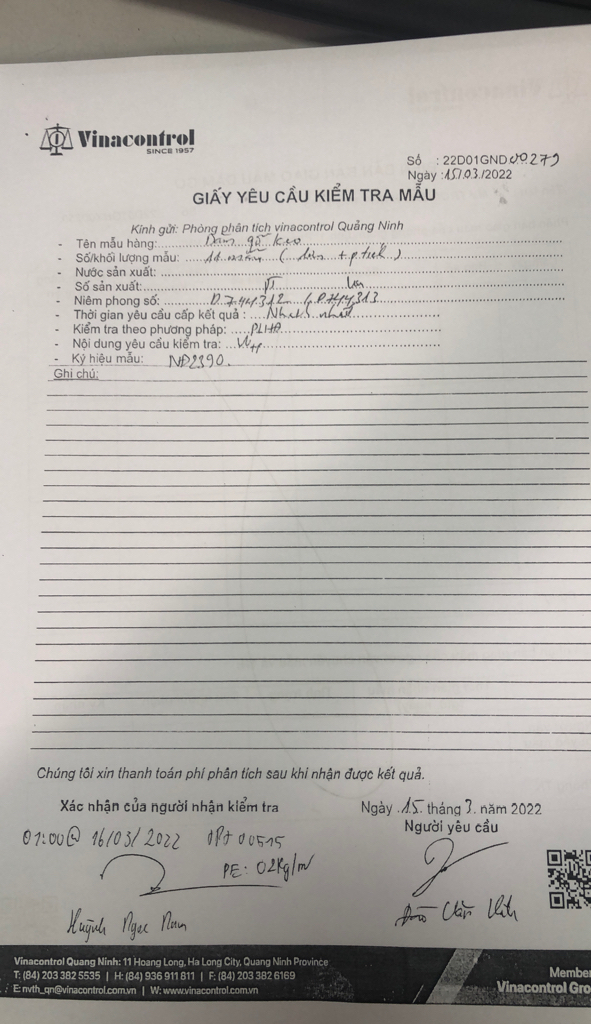 Vinacontrol
SINCE 1957
Số : 22D01GND00279
Ngày :15/.03./2022
GIẤY YÊU CẦU KIỂM TRA MẪU
Kính gửi: Phòng phân tích vinacontrol Quảng Ninh
- Tên mẫu hàng: Dăm gỗ keo
- Số/khối lượng mẫu: 11 mẫu ( + ptich )
- Nước sản xuất:
- Số sản xuất:
- Niêm phong số: D.744312 , D.744313
- Thời gian yêu cầu cấp kết quả : Nhanh nhất
- Kiểm tra theo phương pháp: PLHĐ
- Nội dung yêu cầu kiểm tra:
- Ký hiệu mẫu: NĐ2390.
Ghi chú:
Chúng tôi xin thanh toán phí phân tích sau khi nhận được kết quả.
Xác nhận của người nhận kiểm tra
Ngày .15. tháng 3. năm 2022
Người yêu cầu
07:00@ 16/03/2022 00515
PE: 02kg/m
Huỳnh Ngọc Nam
Đào Văn
Vinacontrol Quang Ninh: 11 Hoang Long, Ha Long City, Quang Ninh Province
T: (84) 203 382 5535 | H: (84) 936 911 811 | F: (84) 203 382 6169
E: nvth_qn@vinacontrol.com.vn | W: www.vinacontrol.com.vn
Member
Vinacontrol Gro